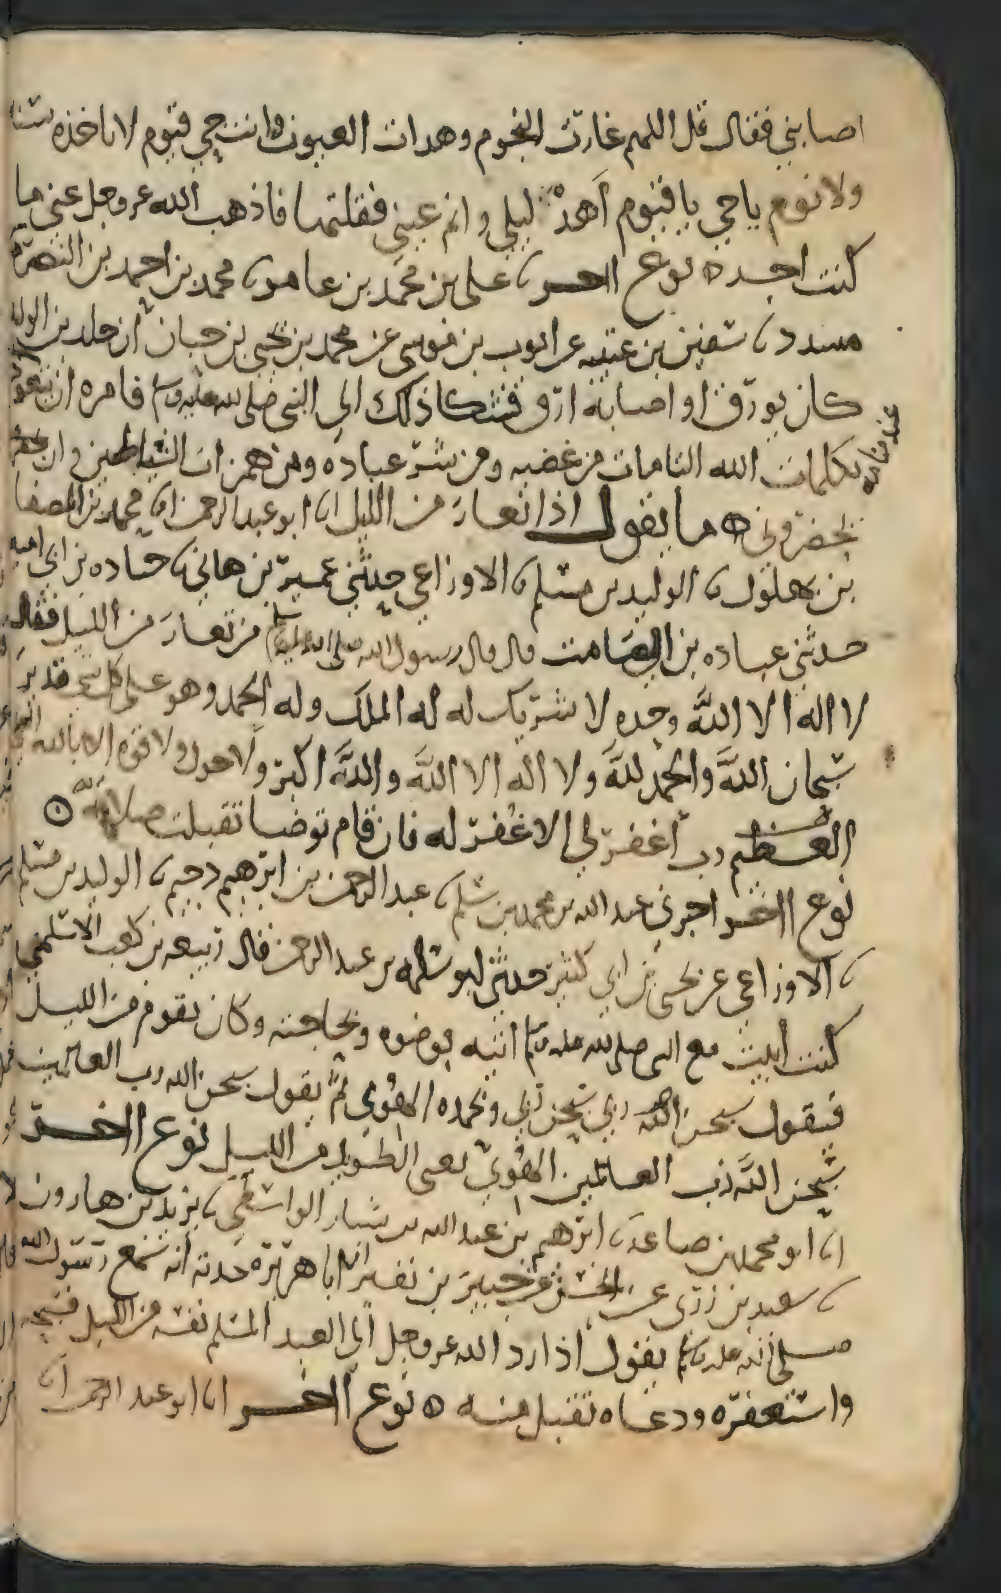 اصابني فقال قل اللهم غارت النجوم وهدات العيون وانت حي قيوم لا تاخذه سنة
ولا نوم يا حي يا قيوم أهد ليلي وانم عيني فقلتها فاذهب الله عز وجل عني ما
كنت اجده نوع اخر علي بن محمد بن عامر محمد بن احمد بن النضر
مسدد سفين بن عيينه عن ايوب بن موسى عن محمد بن يحيى بن حبان ان خلد بن الوليد
كان يورق او اصابه ارق فشكا ذلك الى النبي صلى الله عليه وسلم فامره ان يتعوذ
عند منامه
بكلمات الله التامات من غضبه ومن شر عباده ومن همزات الشياطين وان
يحضروني ه ما يقول اذا تعار من الليل ابو عبد الرحمن محمد بن المصفا
بن بهلول الوليد بن مسلم الاوزاعي حدثني عمير بن هاني جناده بن ابي اميه
حدثني عباده بن الصامت قال قال رسول الله صلى الله عليه وسلم من تعار من الليل فقال
لا اله الا الله وحده لا شريك له له الملك وله الحمد وهو على كل شي قدير
سبحان الله والحمد لله ولا اله الا الله والله اكبر ولا حول ولا قوه الا بالله العلي
العظيم رب اغفر لي الا غفر له فان قام توضا تقبلت صلاته
نوع اخر اخبرني عبد الله بن محمد بن سلم عبد الرحمن بن ابرهيم دحيم الوليد بن مسلم
الاوزاعي عن يحيى بن ابي كثير حدثني ابو سلمه بن عبد الرحمن قال ربيعه بن كعب الاسلمي
كنت ابيت مع النبي صلى الله عليه وسلم اتيه بوضوه وبحاجته وكان يقوم من الليل
فيقول سبحن الله ربي سبحن ربي وبحمده الهوي ثم يقول سبحن الله رب العالمين
سبحن الله رب العالمين الهوي يعني الطويل من الليل نوع اخر
ابو محمد بن صاعد ابرهيم بن عبد الله بن بشار الواسطي يزيد بن هارون
سعيد بن زربي عن الحسن عن جبير بن نفير ان ابا هريره حدثه انه سمع رسول الله
صلى الله عليه وسلم يقول اذا رد الله عز وجل الى العبد المسلم نفسه من الليل فسبحه
واستغفره ودعاه تقبل منه ه نوع اخر ابو عبد الرحمن